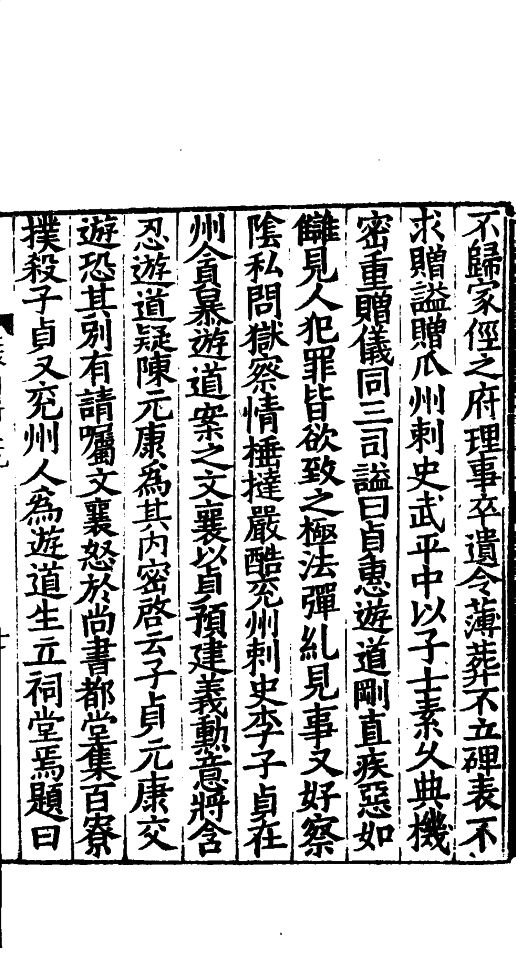 不歸家徑之府理事卒遺令薄葬不立碑表不
求贈謚贈瓜州刺史武平中以子士素久典機
密重贈儀同三司謚曰貞惠遊道剛直疾惡如
讎見人犯罪皆欲致之極法彈糺見事又好察
陰私問獄察情捶撻嚴酷兖州刺史李子貞在
州貪暴遊道案之文襄以貞預建義勳意將含
忍遊道疑陳元康爲其内密啓云子貞元康交
遊恐其別有請囑文襄怒於尚書都堂集百寮
撲殺子貞又兖州人爲遊道生立祠堂焉題曰